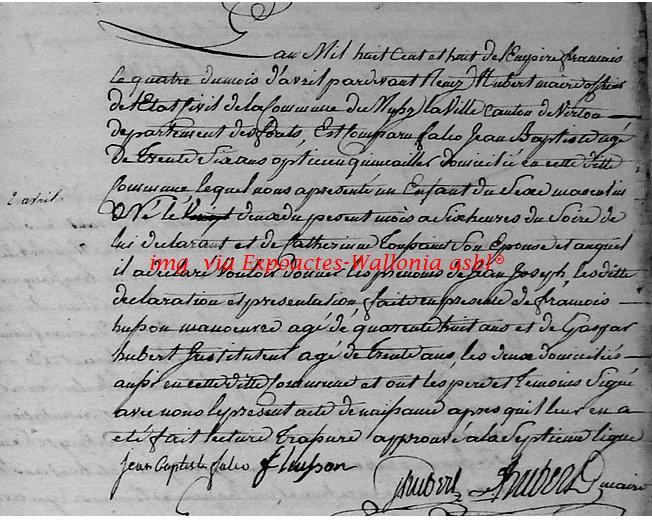 L'an Mil huit Cent et huit de l'Empire francais
le quatre du mois d'avril pardevant Remy Hubert maire officier
de l'Etat Civil de la Commune de Mussy la Ville Canton de Virton
departement des forets Est Comparu falio Jean Baptiste agé
de trente Six ans opticien quincailler domicilié en cette ditte
Commune lequel nous a presenté un Enfant du Sexe masculin
2 avril
Né le vingt deux du present mois a Six heures du Soire de
lui declarant et de Catherinne toupaint Son Epouse et auquel
img via Expoactes-Wallonia asbl®
il a declaré vouloir donner les prenoms de Jean Joseph les ditte
declaration et presentation faite en presence de francois
husson manoeuvre agé de quarente huit ans et de Gaspar
hubert Instituteur agé de trente ans, les deux domiciliés
aussi en cette ditte Commune et ont les pere et temoins Signé
avec nous le present acte de naissance apres qu'il leur en a
eté fait lecture rapure approuvé a la Septieme ligne
Jean Baptiste falio f husson hubert Hubert maire